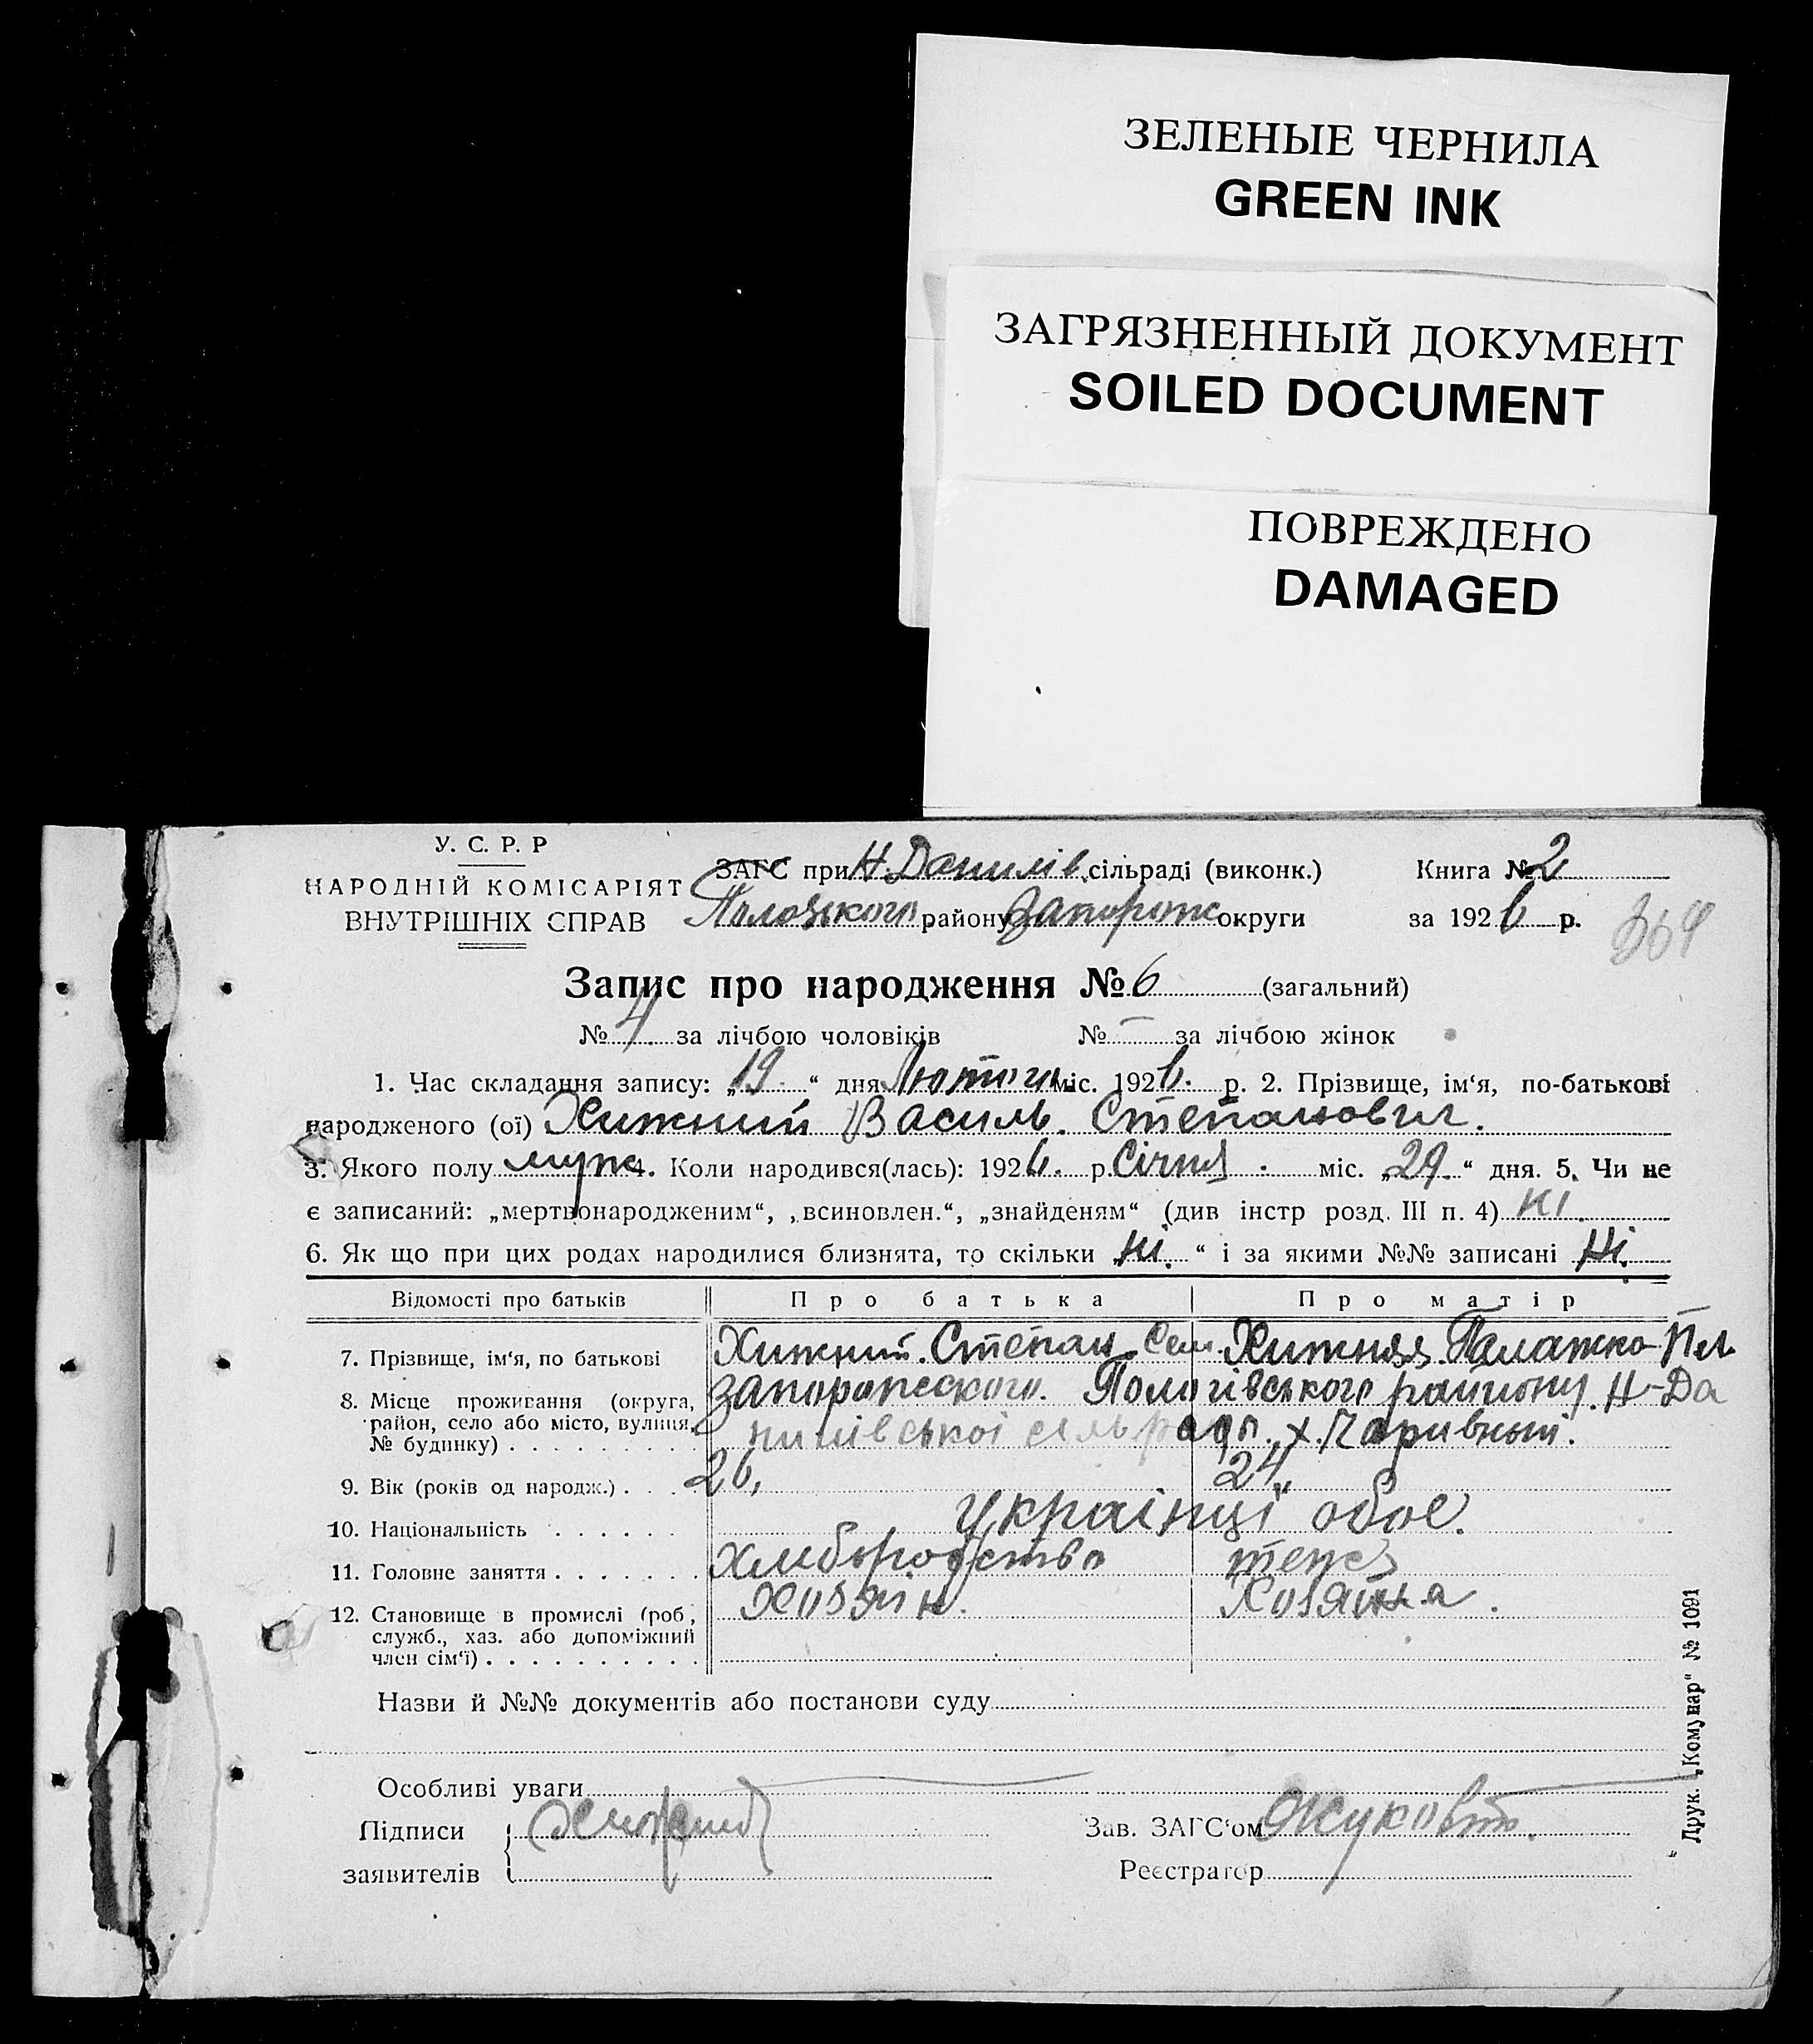 ЗЕЛЕНЫЕ ЧЕРНИЛА
GREEN INK
ЗАГРЯЗНЕННЫЙ ДОКУМЕНТ
SOILED DOCUMENT
ПОВРЕЖДЕНО
DAMAGED
У. С. Р. Р
НАРОДНІЙ КОМІСАРІЯТ
ВНУТРІШНІХ СПРАВ
ЗАГС при Н. Данилів. сільраді (виконк.)
района Запорож округи
Книга № 2
за 1926 р.
364
Запис про народження № 6 (загальний)
№ 4 за лічбою чоловіків № — за лічбою жінок
1. Час складання запису: „19“ дня Лютого міс. 1926. р. 2. Прізвище, ім‘я, по-батькові
народженого (ої) Хижний Василь. Степанович.
3. Якого полу муж 4. Коли народився(лась): 1926. р Січня. міс. „29.“ дня. 5. Чи не
є записаний: „мертвонародженим“, „всиновлен.“, „знайденям“ (див інстр розд. III п. 4) ні.
6. Як що при цих родах народилися близнята, то скільки „ні.“ і за якими №№ записані Ні.
Відомості про батьків Про батька Про матір
7. Прізвище, ім‘я, по батькові Хижний. Степан Сем. Хижняя Палажка
8. Місце проживання (округа, район, село або місто, вулиця, № будинку) . . . . . . . . . Запорожского. Пологівського району. Н-Да
нилівської сельради, х. Чаривный.
9. Вік (років од народж.) . . . . 26, 24,
10. Національність . . . . . . українці обое.
11. Головне заняття . . . . . . . Хлиборобство теж
12. Становище в промислі (роб, служб., хаз. або допоміжний член сім‘ї) . . . . . . . . . . Хозяін. Хозяйка.
Назви й №№ документів або постанови суду
Особливі уваги
Підписи
заявителів
Зав. ЗАГС‘ом
Реєстратор
Друк. „Комунар“ № 1091